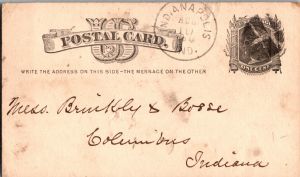 INDIANAPOLIS
IND.
POSTAL CARD.
WRITE THE ADDRESS ON THIS SIDE - THE MESSAGE ON THE OTHER
ONE CENT
Mess. Brinkly & Bosse
Columbus
Indiana